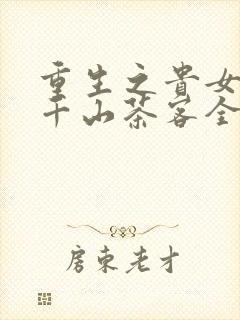 重生之貴女
千山茶客全
房東老才